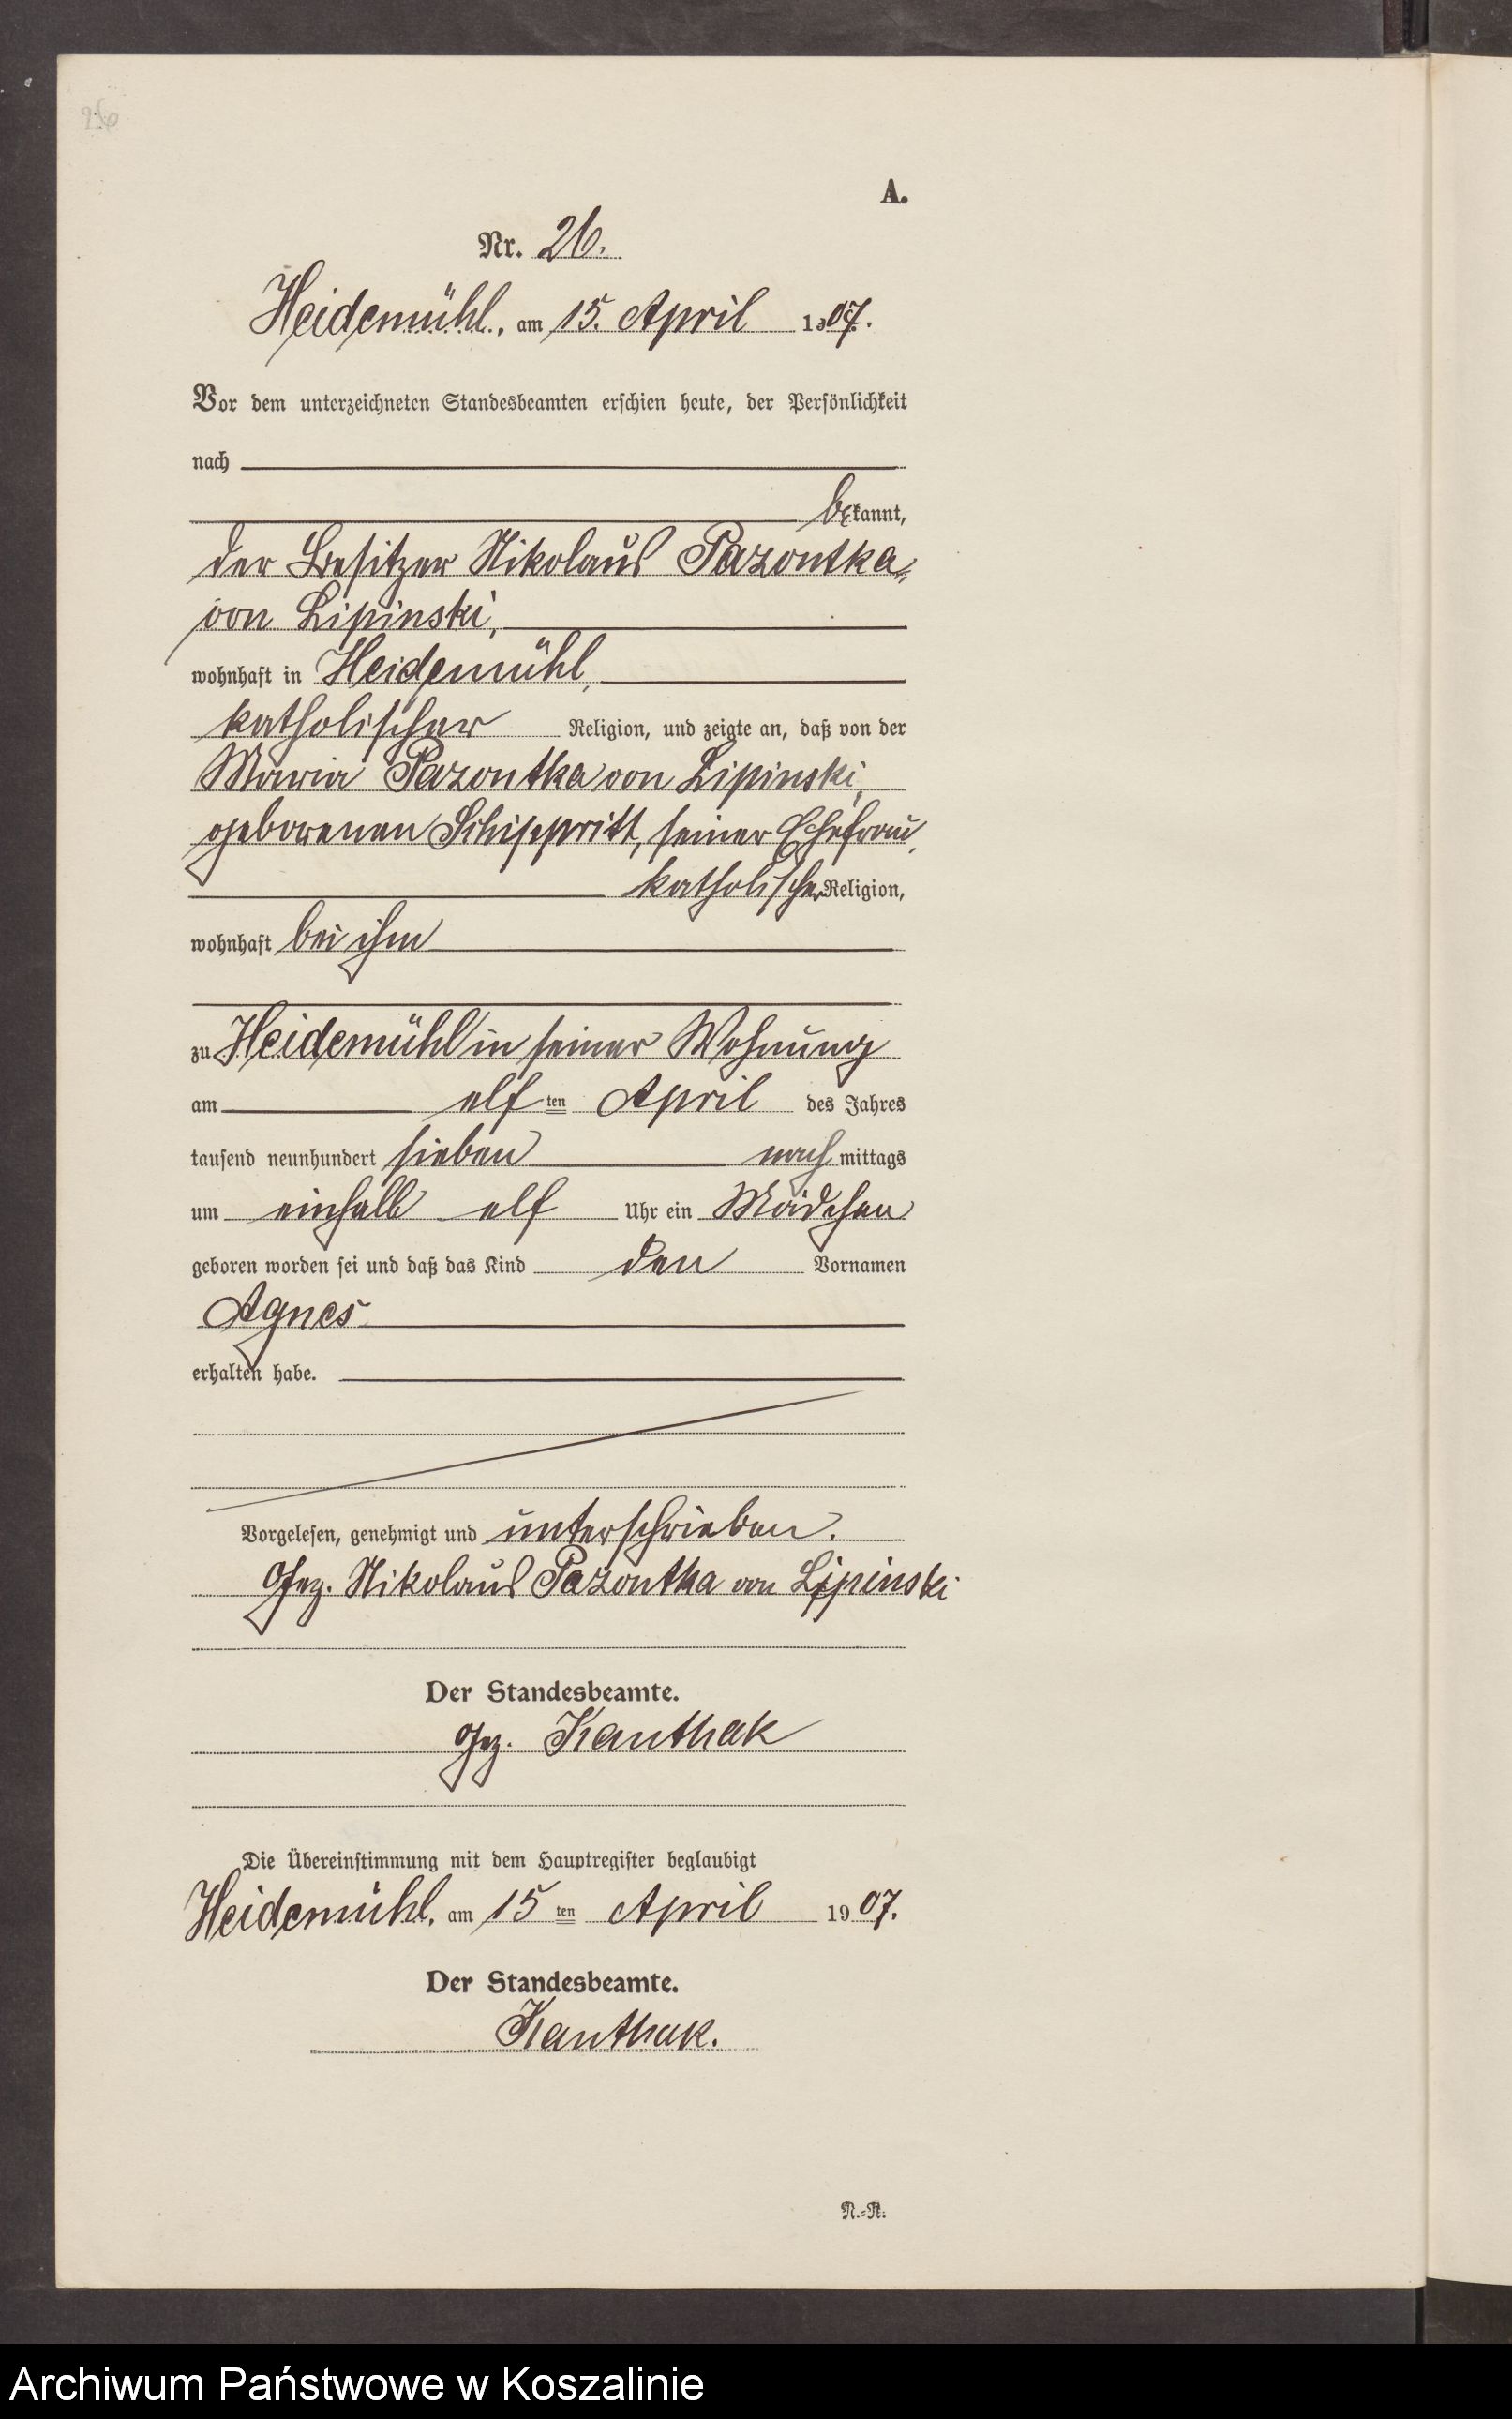 26
A.
Nr. 26.
Heidemühl, am 15. April 1907.
Vor dem unterzeichneten Standesbeamten erschien heute, der Persönlichkeit
nach
bekannt,
der Besitzer Nikolaus Pazontka-
von Lipinski,
wohnhaft in Heidemühl,
katholischer Religion, und zeigte an, daß von der
Maria Pazontka von Lipinski,
geborenen Schippritt, seiner Ehefrau,
katholischer Religion,
wohnhaft bei ihm
zu Heidemühl in seiner Wohnung
am elf ten April des Jahres
tausend neunhundert sieben nach mittags
um einhalb elf Uhr ein Mädchen
geboren worden sei und daß das Kind den Vornamen
Agnes
erhalten habe.
Vorgelesen, genehmigt und unterschrieben.
Gez. Nikolaus Pazontka von Lipinski
Der Standesbeamte.
Gez. Kanthak
Die Übereinstimmung mit dem Hauptregister beglaubigt
Heidemühl, am 15 ten April 1907.
Der Standesbeamte.
Kanthak.
N.-R.
Archiwum Państwowe w Koszalinie